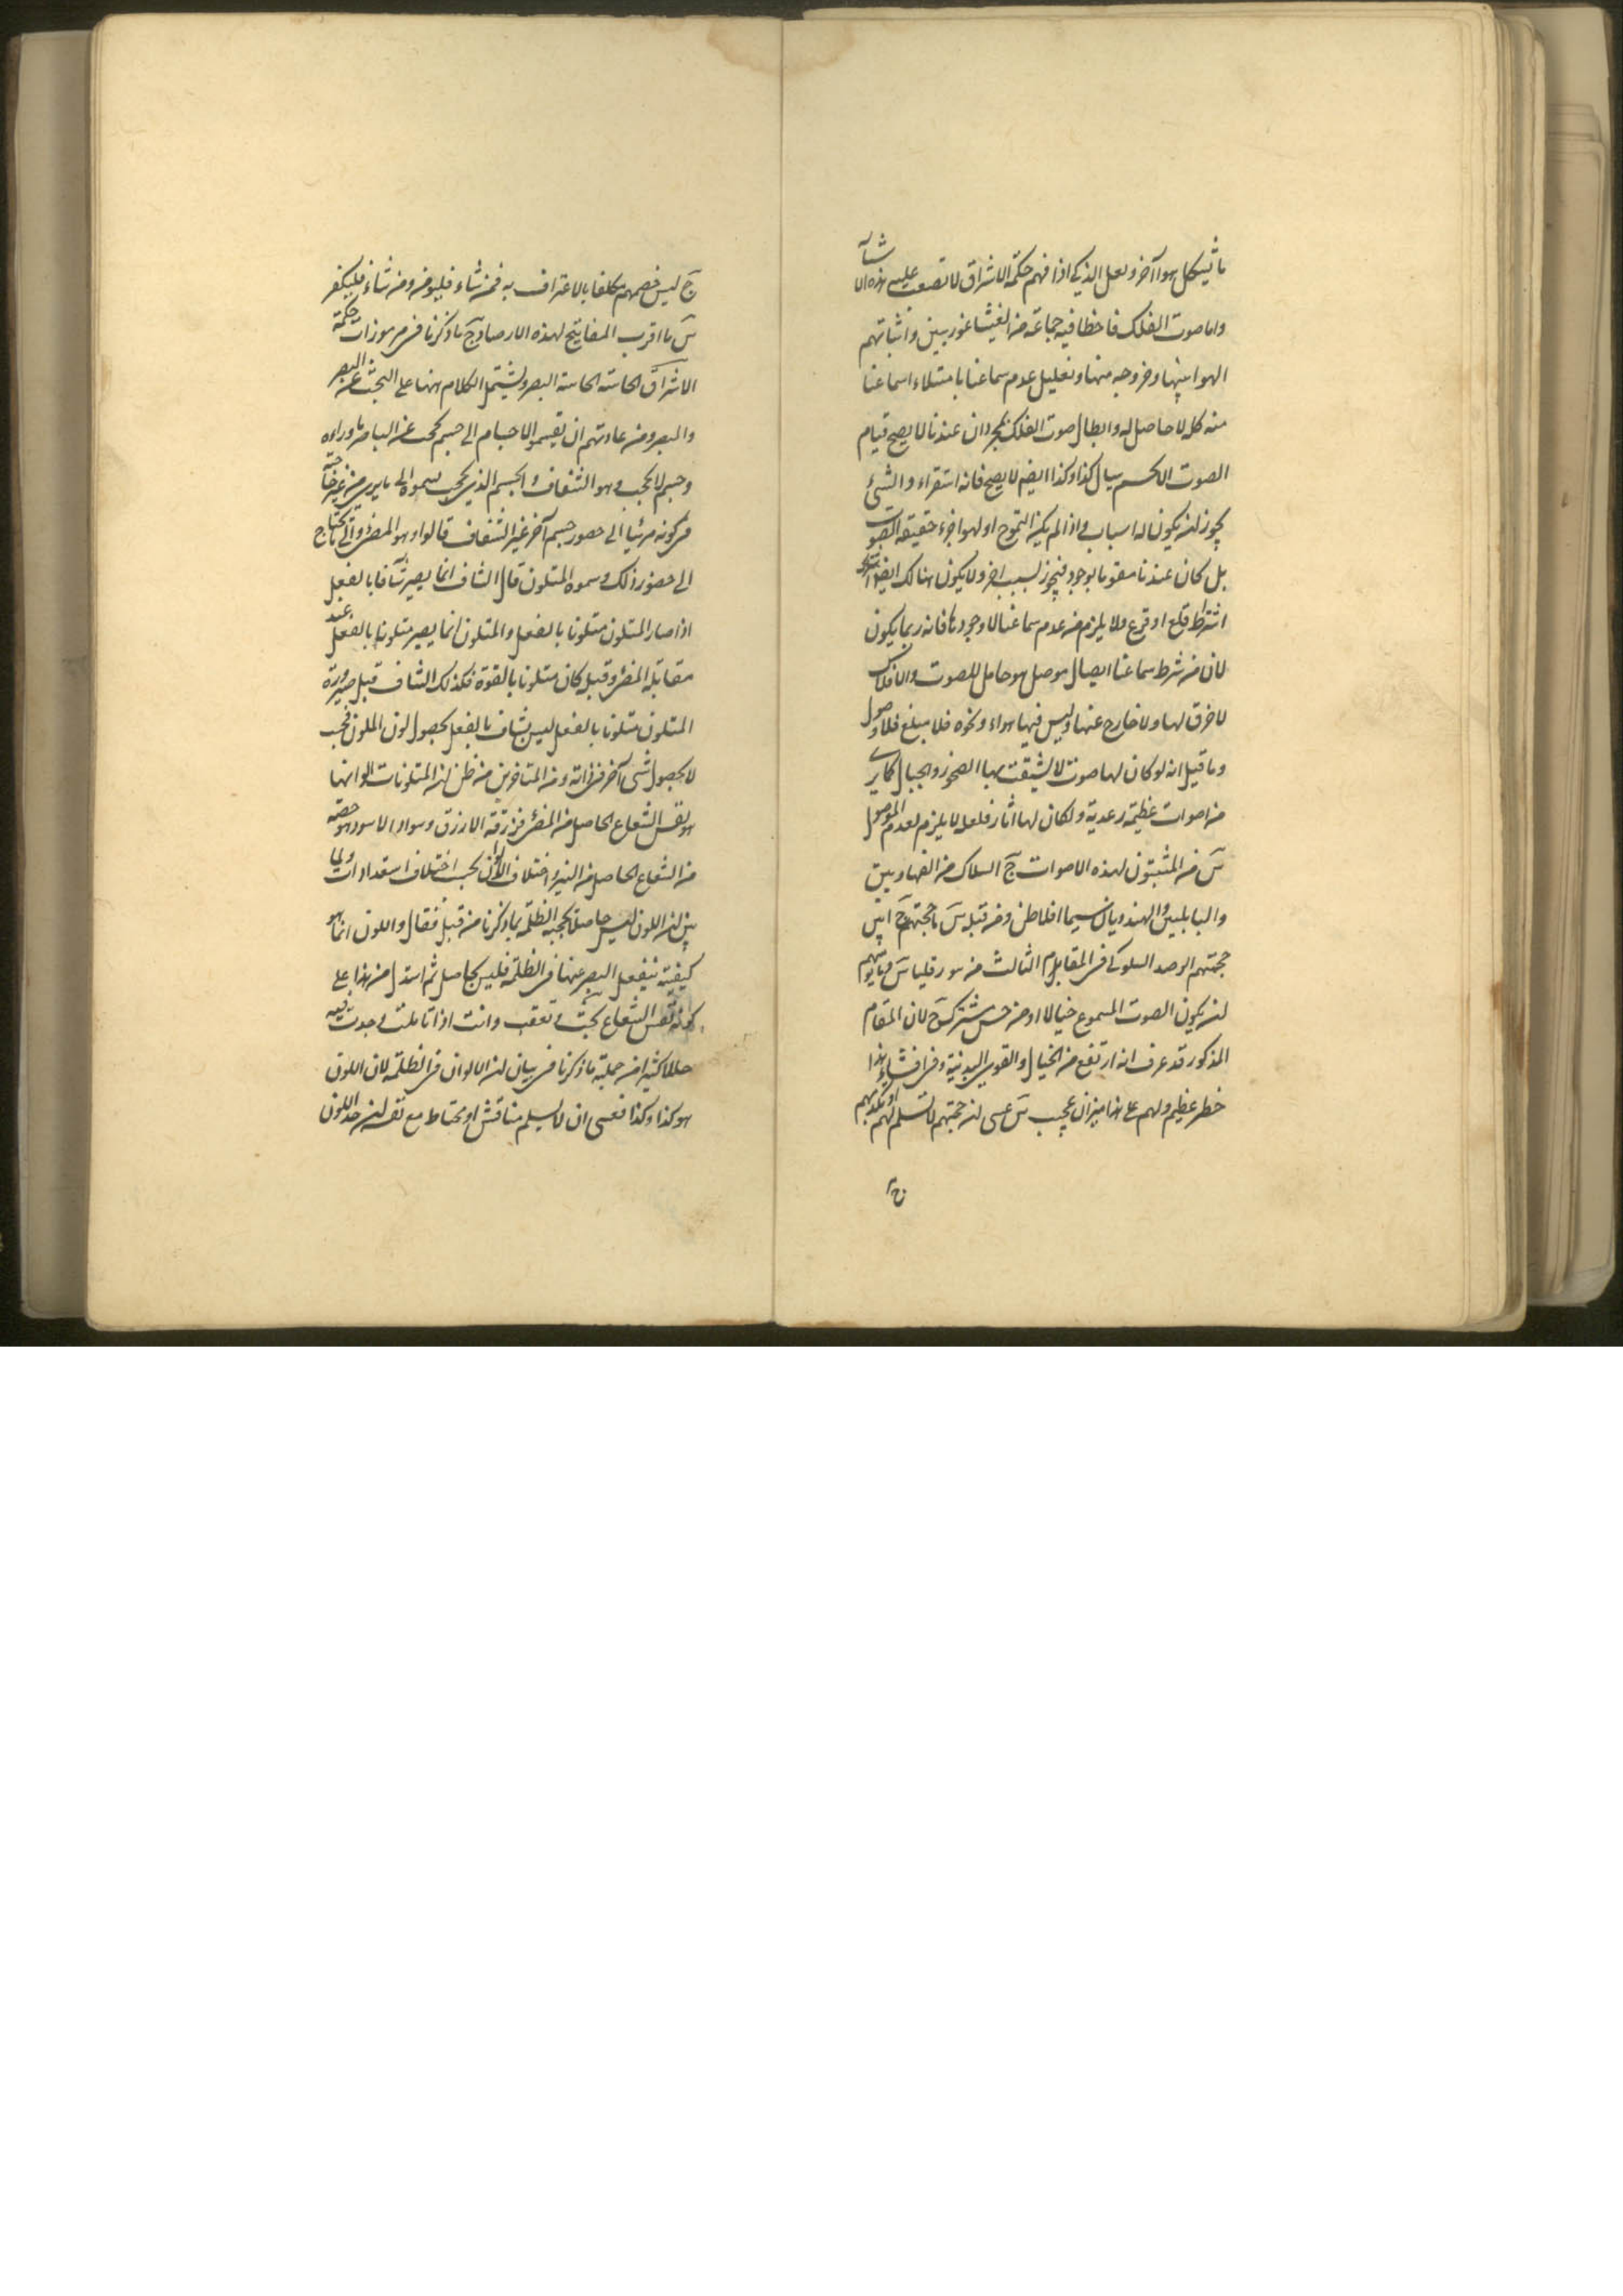 ما تشكل هواء آخر ولعل الذكي اذا فهم حكمة الاشراق لا تصعب عليه هذه الاشياء
واما صوت الفلك فاخطا فيه جماعة من الفيثاغوريين واثباتهم
الهواء بينها وخروجه منها وتعليل عدم سماعنا بامتلاء اسماعنا
منه كله لا حاصل له وابطال صوت الفلك بمجرد ان عندنا لا يصح قيام
الصوت الا بجسم سيال كذا وكذا ايضا لا يصح فانه استقراء والشيء
يجوز ان يكون له اسباب واذا لم يكن التموج او الهواء جزء حقيقة الصوت
بل كان عندنا مقوما لوجوده فيجوز لسبب اخر ولا يكون هنالك ايضا
اشتراط قلع او قرع ولا يلزم من عدم سماعنا لا وجودها فانه ربما يكون
لان من شرط سماعنا ايصال موصل هو حامل للصوت والافلاك
لا خرق لها ولا خارج عنها وليس فيها هواء ونحوه فلا مبلغ فلا وصول
وما قيل انه لو كان لها صوت لانشقت بها الصخور والجبال كما يرى
من اصوات عظيمة رعدية ولكان لها آثار فلعله لا يلزم لعدم الموصل
س من المثبتون لهذه الاصوات ج السلاك من
والبابليين والهند ويونان سيما افلاطن ومن قبله س ما حجتهم ج اليس
حجتهم الرصد السلوكي في المقام الثالث من س
ان يكون الصوت المسموع خيالا او من حس مشترك ج لان المقام
المذكور قد عرف انه ارتفع من الخيال والقوى البدنية وفي افشاء هذا
خطر عظيم ولهم على هذا ميزان عجيب س عسى ان حجتهم لا تسلم لهم
ج ليس خصمهم مكلفا بالاعتراف به فمن شاء فليؤمن ومن شاء فليكفر
س ما اقرب المفاتيح لهذه الارصاد ج ما ذكرنا في مرموزات حكمة
الاشراق الحاسة الخامسة البصر ويشتمل الكلام ههنا على البحث عن البصر
والمبصر ومن عادتهم ان يقسموا الاجسام الى جسم يحجب عن البصر ما وراءه
وجسم لا يحجب وهو الشفاف والجسم الذي يحجب قسموه الى ما يرى من غير حاجة
في كونه مرئيا الى حضور جسم آخر غير الشفاف قالوا وهو المضيء والى ما يحتاج
الى حضور ذلك وسموه المتلون قال الشفاف انما يصير شافا بالفعل
اذا صار المتلون متلونا بالفعل والمتلون انما يصير متلونا بالفعل عند
مقابلة المضيء وقبل كان متلونا بالقوة فكذلك الشاف قبل صيرورة
المتلون متلونا بالفعل ليس بشاف بالفعل بحصول لون المتلون فحسب
لا بحصول شيء آخر في ذاته ومن المتاخرين من ظن ان المتلونات الوانها
هو نفس الشعاع الحاصل من المضيء في زرقة الازرق وسواد الاسود هو حصته
من الشعاع الحاصل من النير واختلاف الالوان بحسب اختلاف استعدادات ولما
بين ان اللون ليس حاصلا تحجبه الظلمة بما ذكرنا من قبل فقال واللون انما هو
كيفية ينفعل البصر عنها في الظلمة فليس بحاصل ثم استدل من هذا على
كونه نفس الشعاع بحث وتعقب وانت اذا تاملت وجدت فيه
خللا كثيرا من جملته ما ذكرنا في بيان ان الالوان في الظلمة لان اللون
هو كذا وكذا فعسى ان لا يسلم مناقش او يحتاط مع نفسه ان حد اللون